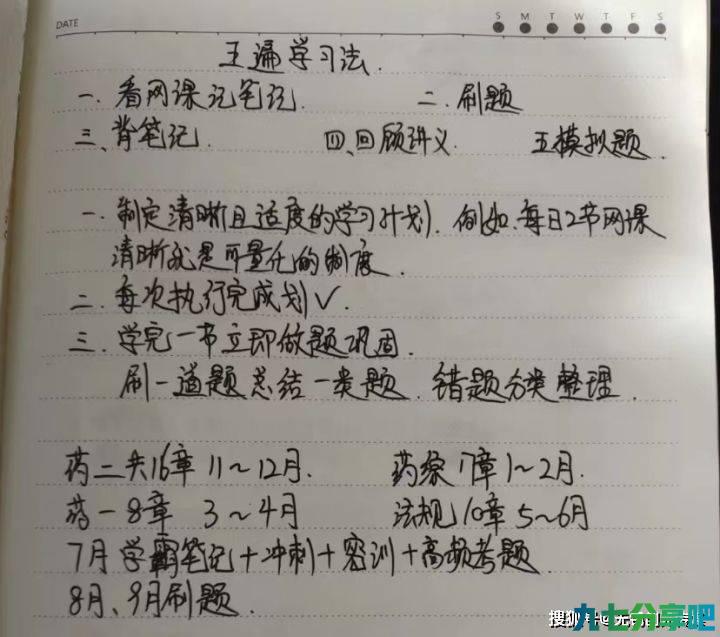 DATE S M T W T F S
五遍学习法.
一. 看网课记笔记. 二. 刷题
三、背笔记. 四、回顾讲义. 五模拟题.
一. 制定清晰且适度的学习计划. 例如.每日2节网课
清晰就是可量化的制度.
二. 每次执行完成划√.
三. 学完一节立即做题巩固.
刷一道题总结一类题. 错题分类整理.
药二共16章 11~12月. 药综17章1~2月.
药一8章 3~4月 法规10章5~6月
7月学霸笔记+冲刺+密训+高频考题.
8月、9月刷题.
搜狐号@
九七分享吧